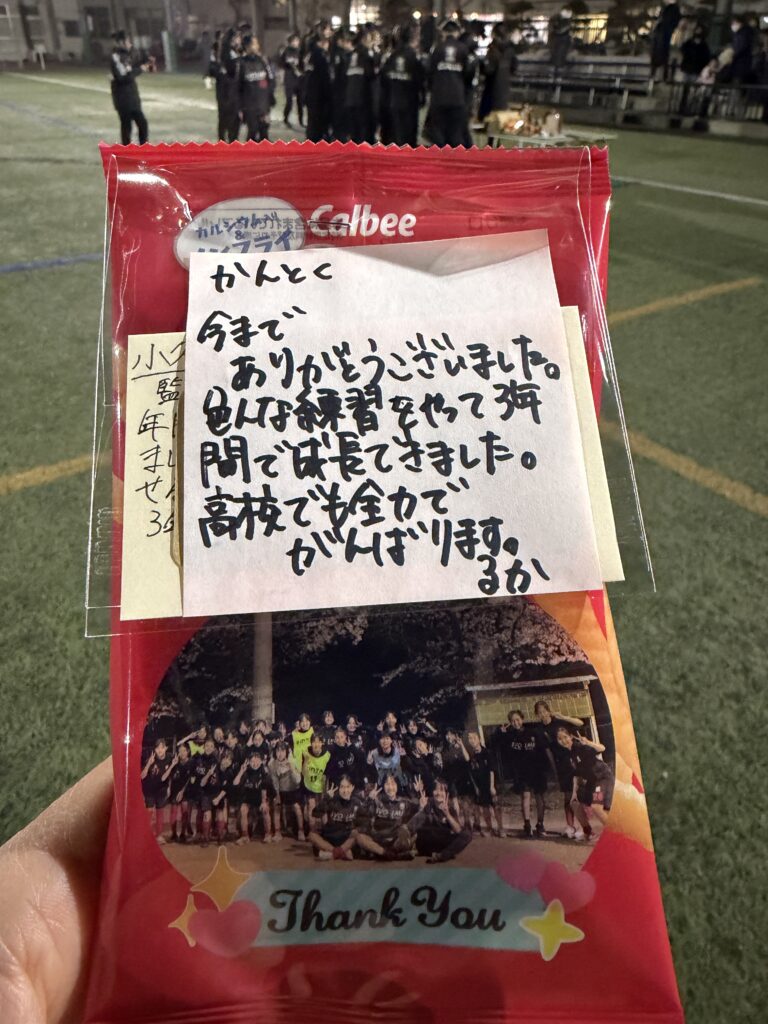 Calbee
かんとく
今まで
ありがとうございました。
色んな練習をやって3年
間で成長できました。
高校でも全力で
がんばります。
るか
Thank You